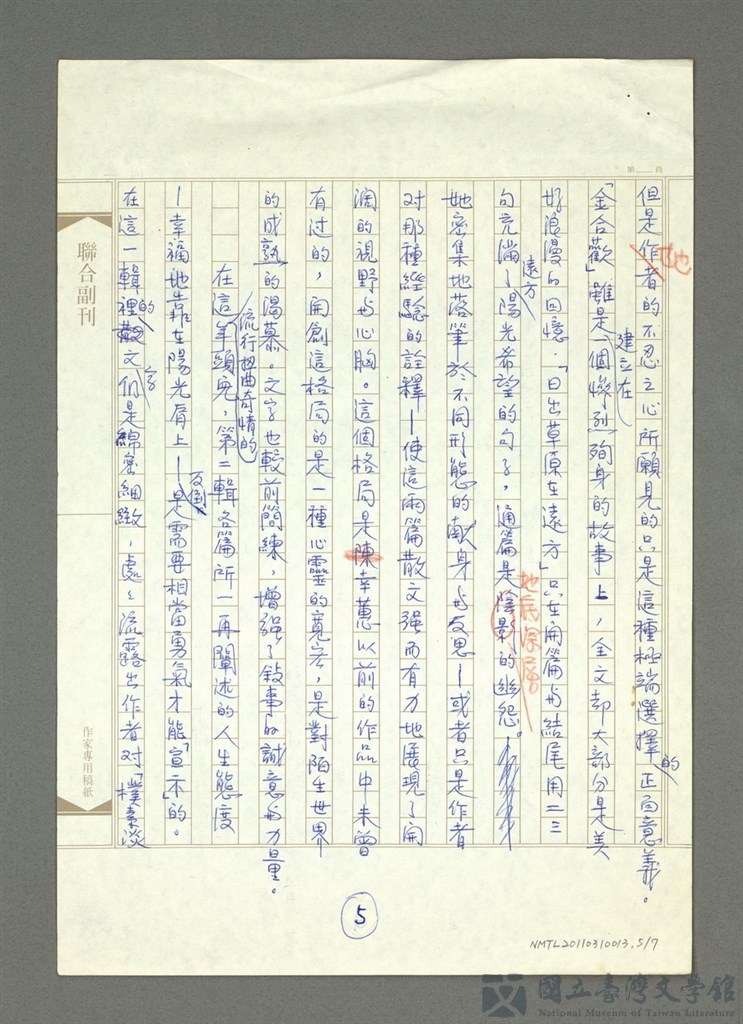 第 頁
但是作者的不忍之心所願見的只是這種極端選擇的正面意義。
她
「金合歡」雖是建立在一個慘烈殉身的故事上，全文却大部分是美
好浪漫的回憶．「日出草原在遠方」只在開篇与結尾用二三
句充滿了遠方陽光希望的句子，通篇是陰影的幽怨。
地底深層
她密集地落筆於不同形態的献身与反思—或者只是作者
對那種經驗的詮釋—使這兩篇散文强而有力地展現了開
濶的視野与心胸。這個格局是陳幸蕙以前的作品中未曾
有过的，開創這格局的是一種心靈的寬宏，是對陌生世界
的成熟的渴慕。文字也較前簡練，增强了敍事的誠意与力量。
在這流行扭曲奇情的年頭兒，第二輯各篇所一再闡述的人生態度
—幸福地靠在陽光肩上—反倒是需要相當勇氣才能「宣示」的。
在這一輯裡的散文，文字是綿密細緻，處々流露出作者對「樸素淡
聯合副刊
作家專用稿紙
5
NMTL20110310013.5/7
國立臺灣文學館
National Museum of Taiwan Literature